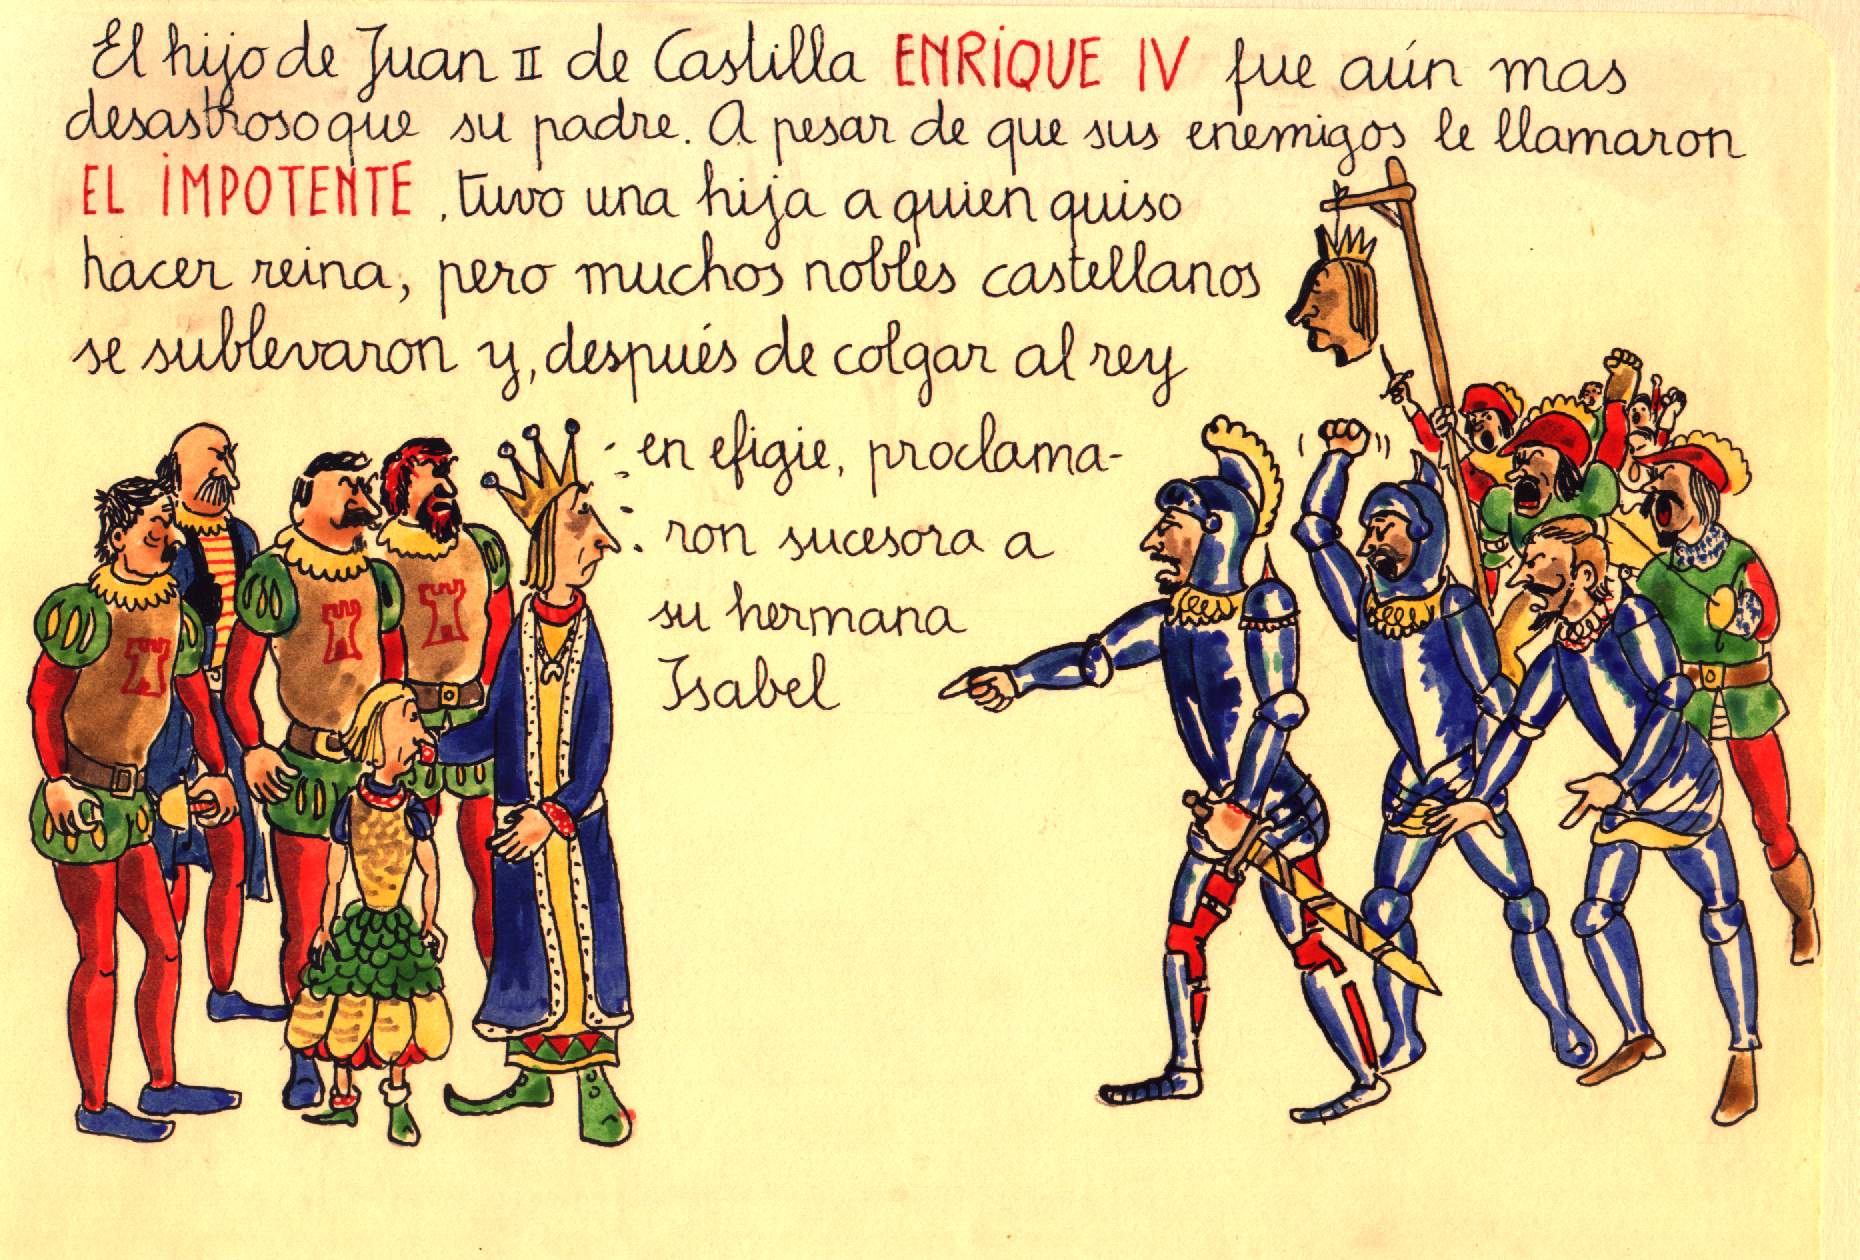 El hijo de Juan II de Castilla ENRIQUE IV fue aún mas
desastroso que su padre. A pesar de que sus enemigos le llamaron
EL IMPOTENTE, tuvo una hija a quien quiso
hacer reina, pero muchos nobles castellanos
se sublevaron y, después de colgar al rey
en efigie, proclama-
ron sucesora a
su hermana
Isabel